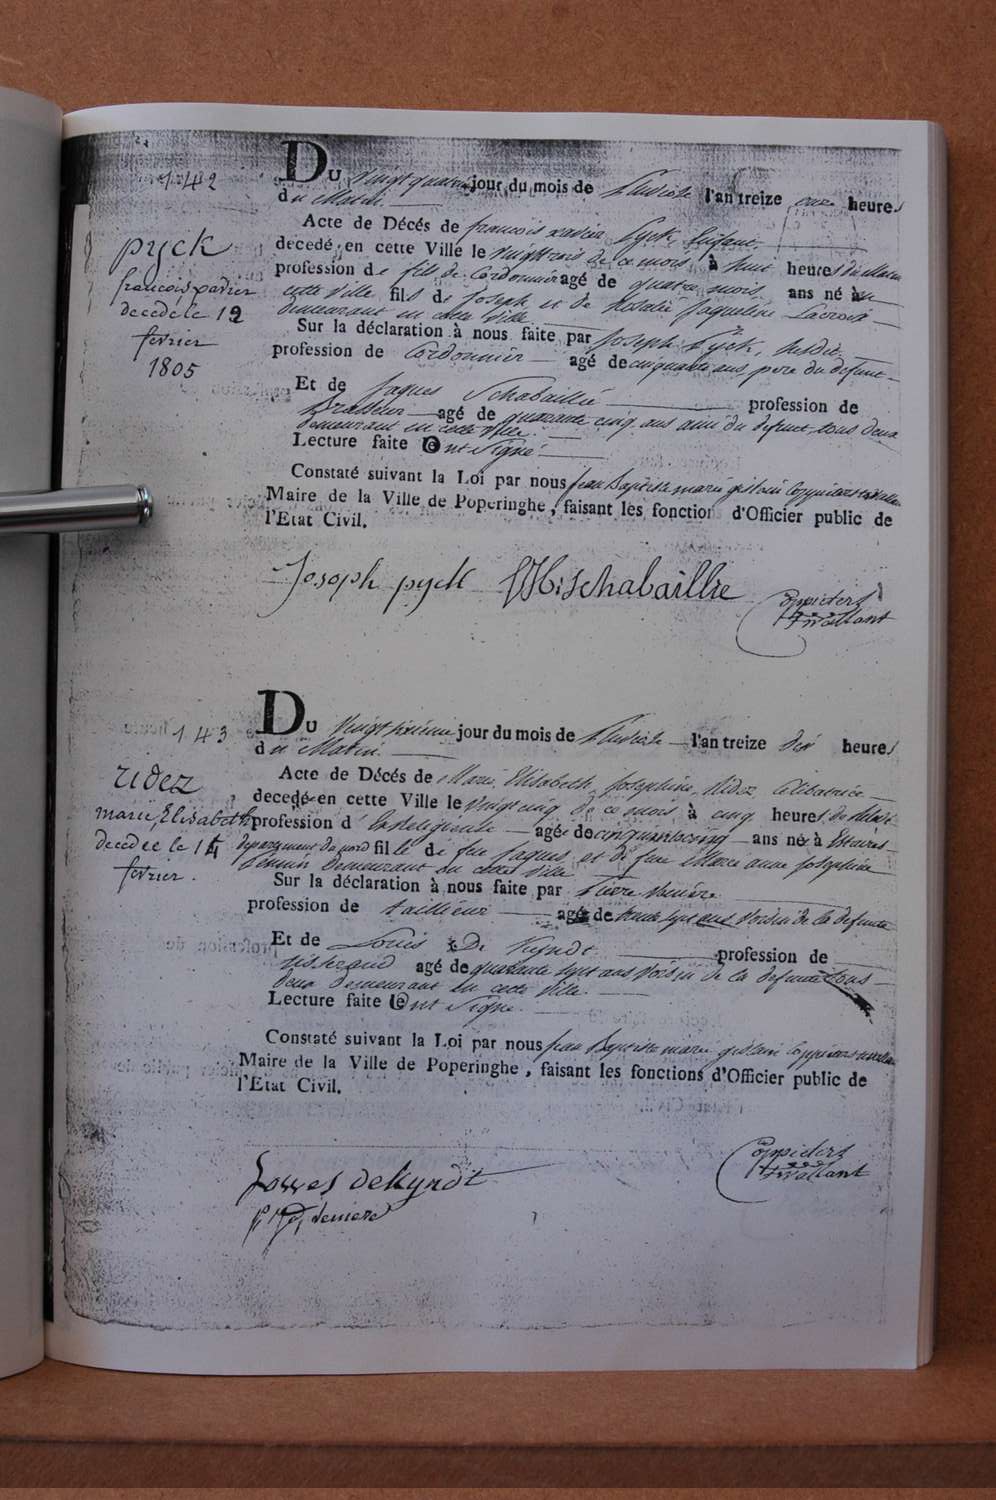 142
pyck
françois xavier
decedé le 12
fevrier
1805
Du vingt quatre jour du mois de Pluviose l'an treize onze heures
du Matin.
Acte de Décés de françois xavier Pyck Enfant
decedé en cette Ville le vingt trois de ce mois, à huit heures du Matin
profession de fils de Cordonnier agé de quatre mois ans né à en
cette Ville fils de Joseph et de Rosalie Jaqueline Lacroix
demeurant en cette Ville
Sur la déclaration à nous faite par Joseph Pyck, susdit
profession de Cordonnier agé de cinquante ans, pere du defunt
Et de Jaques Schabaillie profession de
Brasseur agé de quarante cinq ans ami du defunt, tous deux
demeurant en cette Ville.
Lecture faite Ont Signé
Constaté suivant la Loi par nous jean Baptiste marie gislain
Maire de la Ville de Poperinghe, faisant les fonctions d'Officier public de
l'Etat Civil.
Joseph pyck Schabaillie
143
ridez
marie, Elisabeth
decedée le 14
fevrier.
Du vingt sixième jour du mois de Pluviose l'an treize dix heures
du Matin.
Acte de Décés de Marie, Elisabeth, Josephine, Ridez Celibataire
decedé en cette Ville le vingt cinq de ce mois, à cinq heures du
profession d' Ex Religieuse agée de cinquante cinq ans né à Estaires
departement du nord fille de feu Jaques et de feue Marie anne Josephine
demeurant en cette Ville
Sur la déclaration à nous faite par Pierre
profession de tailleur agé de trente sept ans Voisin de la defunte
Et de Louis De Kyndt profession de
tisserand agé de quarante sept ans Voisin de la defunte tous
deux demeurant en cette Ville.
Lecture faite Ont Signé.
Constaté suivant la Loi par nous jean Baptiste marie gislain
Maire de la Ville de Poperinghe, faisant les fonctions d'Officier public de
l'Etat Civil.
dekyndt